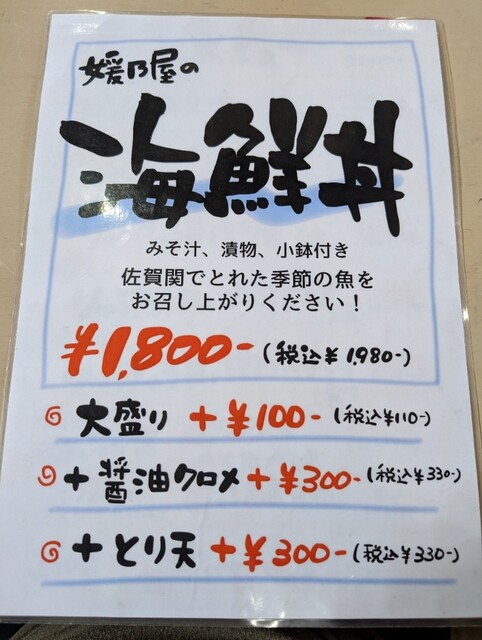 媛乃屋の
海鮮丼
みそ汁、漬物、小鉢付き
佐賀関でとれた季節の魚を
お召し上がりください！
¥1,800- (税込¥1,980-)
大盛り +¥100- (税込¥110-)
+醤油クロメ +¥300- (税込¥330-)
+とり天 +¥300- (税込¥330-)